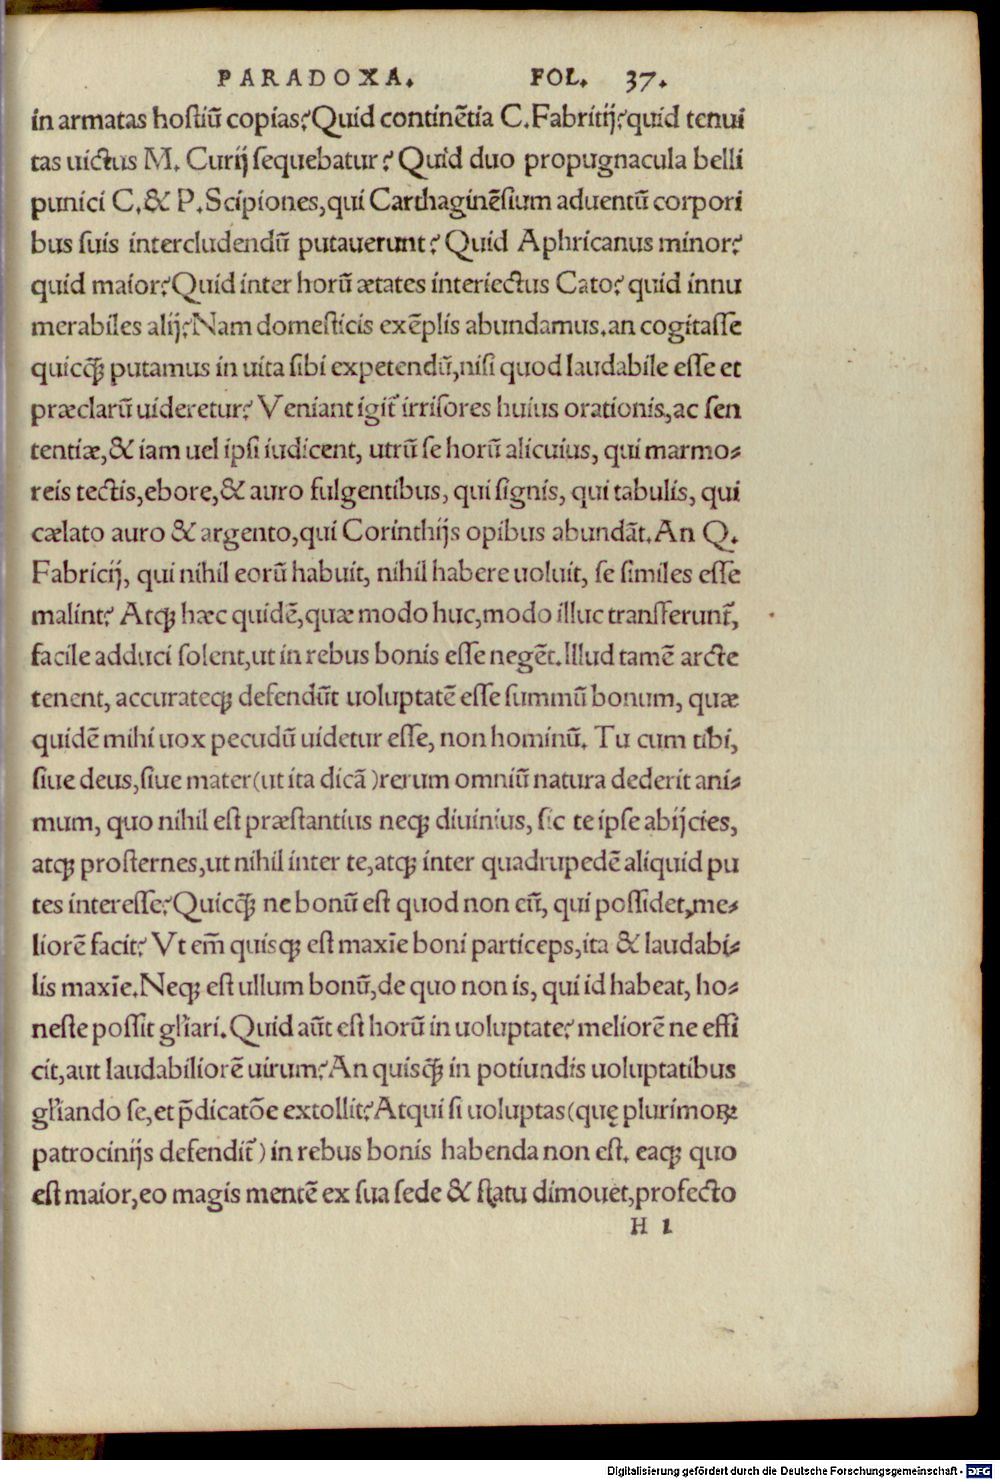 PARADOXA. FOL. 37.
in armatas hostiū copias? Quid continētia C. Fabritij? quid tenui
tas uictus M. Curij sequebatur? Quid duo propugnacula belli
punici C. & P. Scipiones, qui Carthaginēsium aduentū corpori
bus suis intercludendū putauerunt? Quid Aphricanus minor?
quid maior? Quid inter horū ætates interiectus Cato? quid innu
merabiles alij? Nam domesticis exēplis abundamus. an cogitasse
quicq̄ꝫ putamus in uita sibi expetendū, nisi quod laudabile esse et
præclarū uideretur? Veniant igit̄ irrisores huius orationis, ac sen
tentiæ, & iam uel ipsi iudicent, utrū se horū alicuius, qui marmo-
reis tectis, ebore, & auro fulgentibus, qui signis, qui tabulis, qui
cælato auro & argento, qui Corinthijs opibus abundāt. An Q.
Fabricij, qui nihil eorū habuit, nihil habere uoluit, se similes esse
malint? Atqꝫ hæc quidē, quæ modo huc, modo illuc transferunt̄,
facile adduci solent, ut in rebus bonis esse negēt. Illud tamē arcte
tenent, accurateqꝫ defendūt uoluptatē esse summū bonum, quæ
quidē mihi uox pecudū uidetur esse, non hominū. Tu cum tibi,
siue deus, siue mater (ut ita dicā) rerum omniū natura dederit ani-
mum, quo nihil est præstantius neqꝫ diuinius, sic te ipse abijcies,
atqꝫ prosternes, ut nihil inter te, atqꝫ inter quadrupedē aliquid pu
tes interesse? Quicq̄ꝫ ne bonū est quod non eū, qui possidet, me-
liorē facit? Vt em̄ quisqꝫ est maxīe boni particeps, ita & laudabi-
lis maxīe. Neqꝫ est ullum bonū, de quo non is, qui id habeat, ho-
neste possit gl̄iari. Quid aūt est horū in uoluptate? meliorē ne effi
cit, aut laudabiliorē uirum? An quisq̄ꝫ in potiundis uoluptatibus
gl̄iando se, et p̄dicatōe extollit? Atqui si uoluptas (quę plurimoꝝ
patrocinijs defendit̄) in rebus bonis habenda non est. eaqꝫ quo
est maior, eo magis mentē ex sua sede & statu dimouet, profecto
H 1
Digitalisierung gefördert durch die Deutsche Forschungsgemeinschaft - DFG